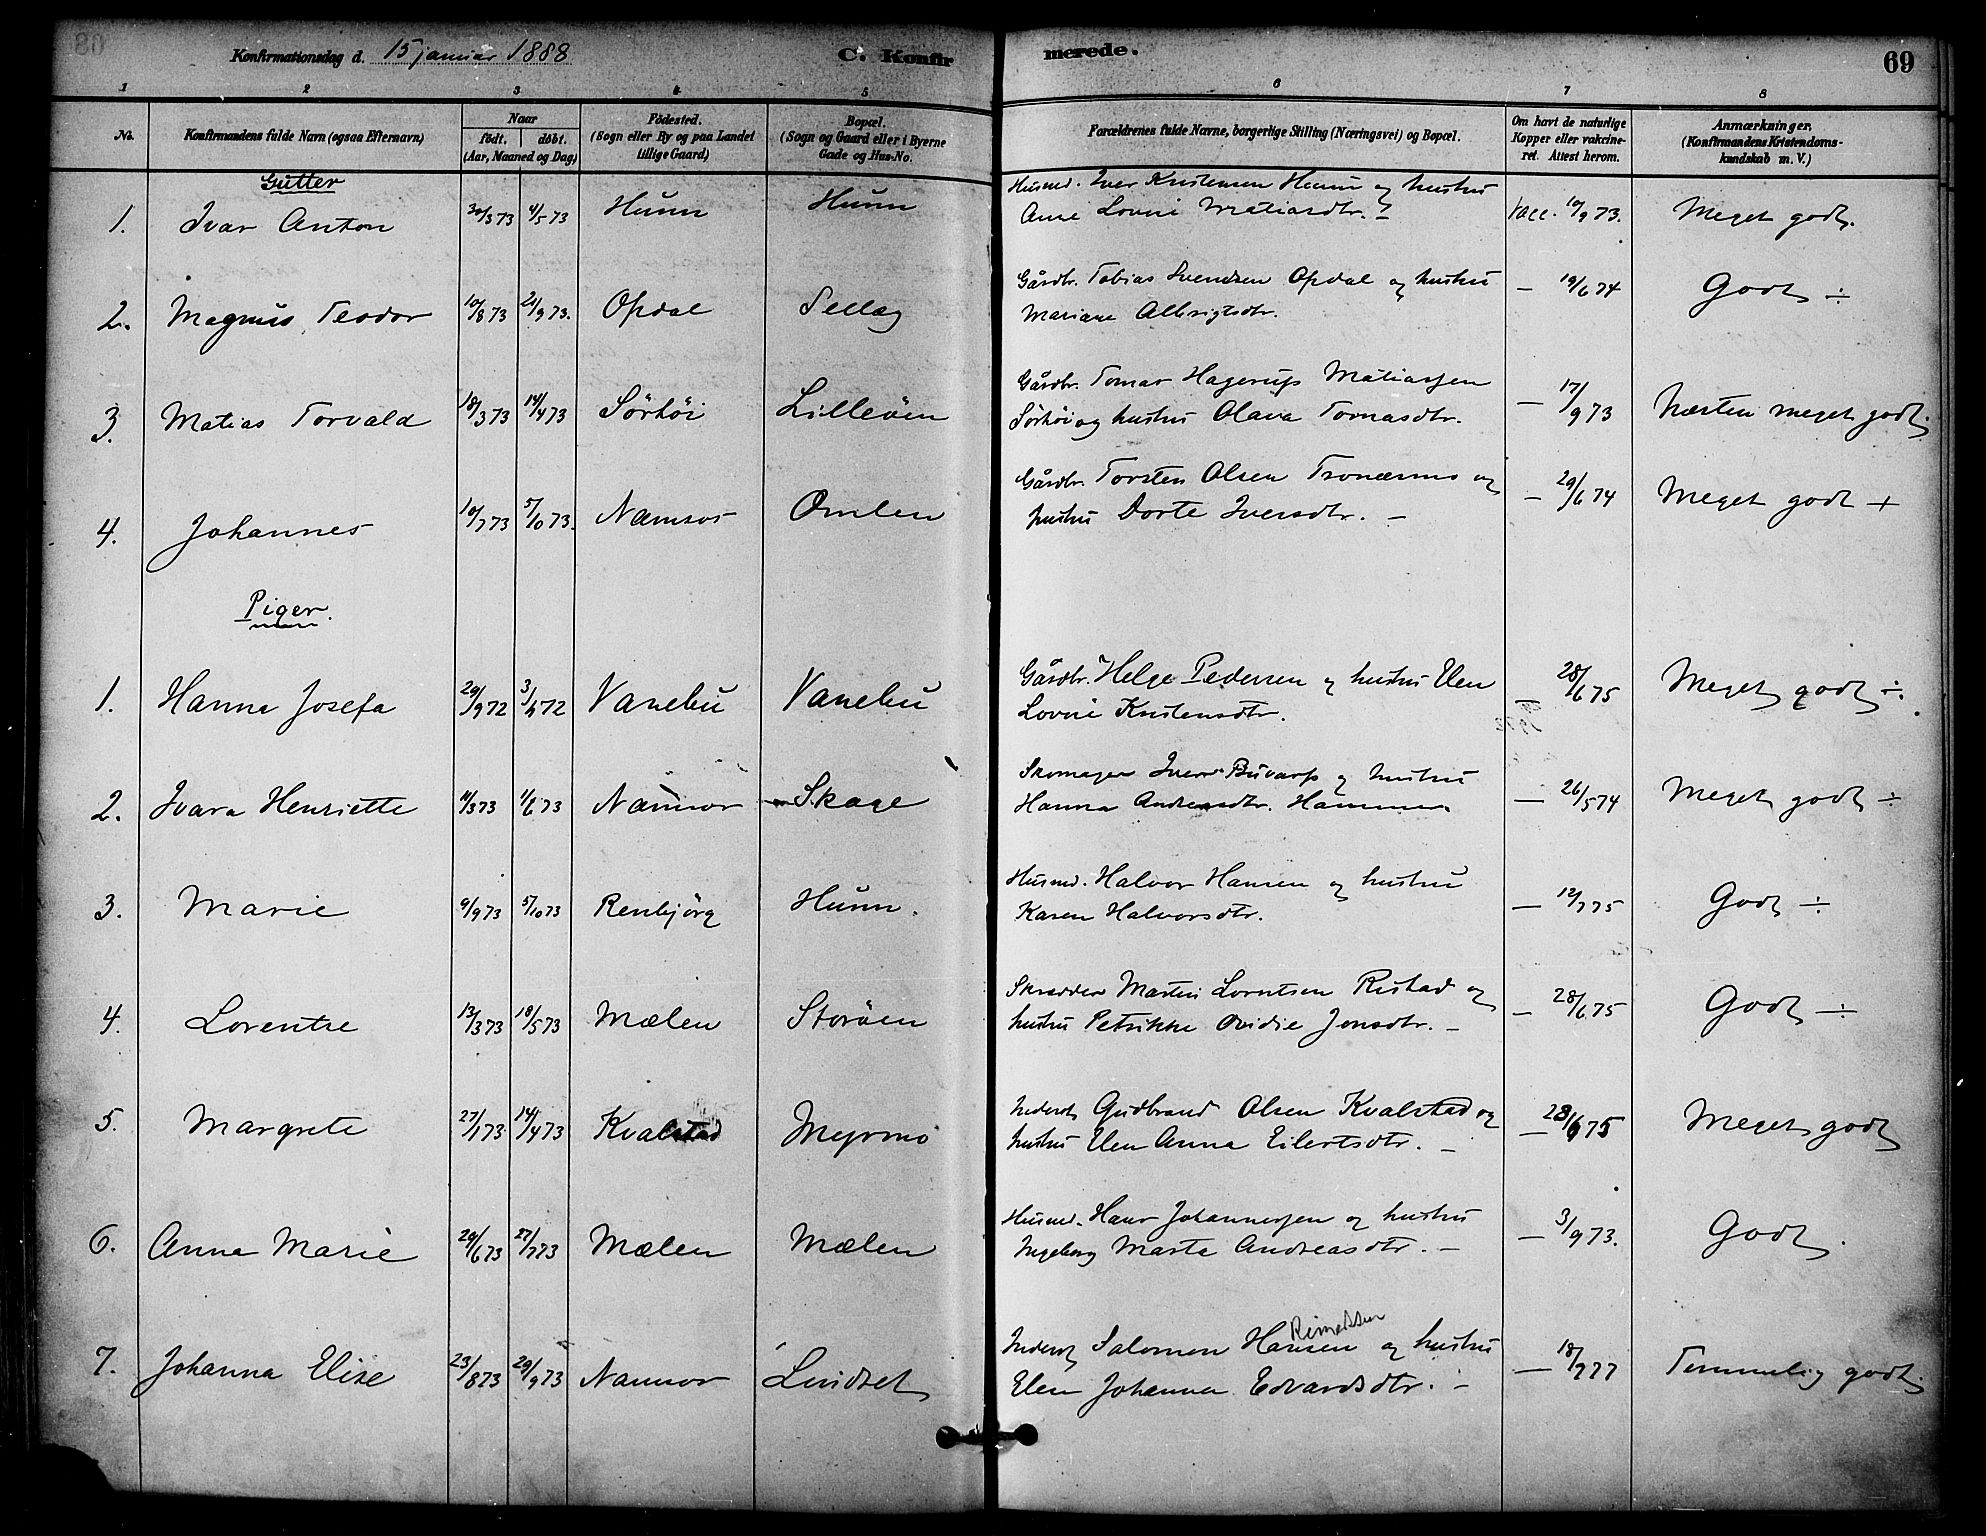 Konfirmationsdag d. 15 januar 1888 C. Konfirmerede. 69
1 2 3 4 5 6 7 8
No. Konfirmandens fulde Navn (ogsaa Efternavn) Naar født. døbt. (Aar, Maaned og Dag) Fødested. (Sogn eller By og paa Landet tillige Gaard) Bopæl. (Sogn og Gaard eller i Byerne Gade og Hus-No. Forældrenes fulde Navne, borgerlige Stilling (Næringsvei) og Bopæl. Om havt de naturlige Kopper eller vakcineret. Attest herom. Anmærkninger. (Konfirmandens Kristendomskundskab m. V.)
Gutter
1. Ivar Anton 30/3 73 4/5 73 Hunn Hunn Husmd. Iver Kristensen Hunn og hustru
Ane Lovise Matiasdtr. - Vacc. 10/9 73. Meget godt.
2. Magnus Teodor 10/8 73 21/9 73. Opdal Sellæg Gårdbr. Tobias Svendsen Opdal og hustru
Mariane Albrigtsdtr. - 19/6 74 Godt ÷
3. Matias Torvald 18/3 73 14/4 73 Sörhöi Lilleöen Gårdbr. Tomas Hagerup Matiassen
Sörhöi og hustru Olava Tomasdtr. - 17/9 73 Næsten meget godt.
4. Johannes 10/7 73 5/10 73. Namsos Omlen Gårdbr. Torsten Olsen og
hustru Dorte Iversdtr. - - 29/6 74 Meget godt +
Piger.
1. Hanna Josefa 29/9 72 72 Vanebu Vanebu Gårdbr. Helge Pedersen og hustru Elen
Lovise Kristensdtr. - 28/6 75 Meget godt ÷.
2. Ivara Henriette 11/3 73 1/6 73 Namsos Skage Skomager Iver Buvarp og hustru
Hanna Andreasdtr. Hammer. - 26/5 74 Meget godt ÷
3. Marie 9/9 73 5/10 73 Renbjörg Hunn. Husmd. Halvor Hansen og hustru
Karen Halvorsdtr. - 12/7 75 Godt ÷
4. Lorentse 13/3 73 18/5 73 Mælen Storöen Skrædder Martin Lorntsen Ristad og
hustru Petrikke Ovidie Jonsdtr. - - 28/6 75 Godt ÷
5. Margrete 27/1 73 14/4 73 Kvalstad Myrmo Inderst Gudbrand Olsen Kvalstad og
hustru Elen Anna Eilertsdtr. - - 28/6 75 Meget godt
6. Anna Marie 29/6 73 27/7 73 Mælen Mælen Husmd. Hans Johannessen og hustru
Ingeborg Marta Andreasdtr. - - 3/9 73. Godt.
7. Johanna Elise 23/8 73 29/9 73 Namsos Lindset Inderst Salomon Hansen og hustru
Elen Johanna Edvardsdtr. - - 18/7 77 Temmelig godt.